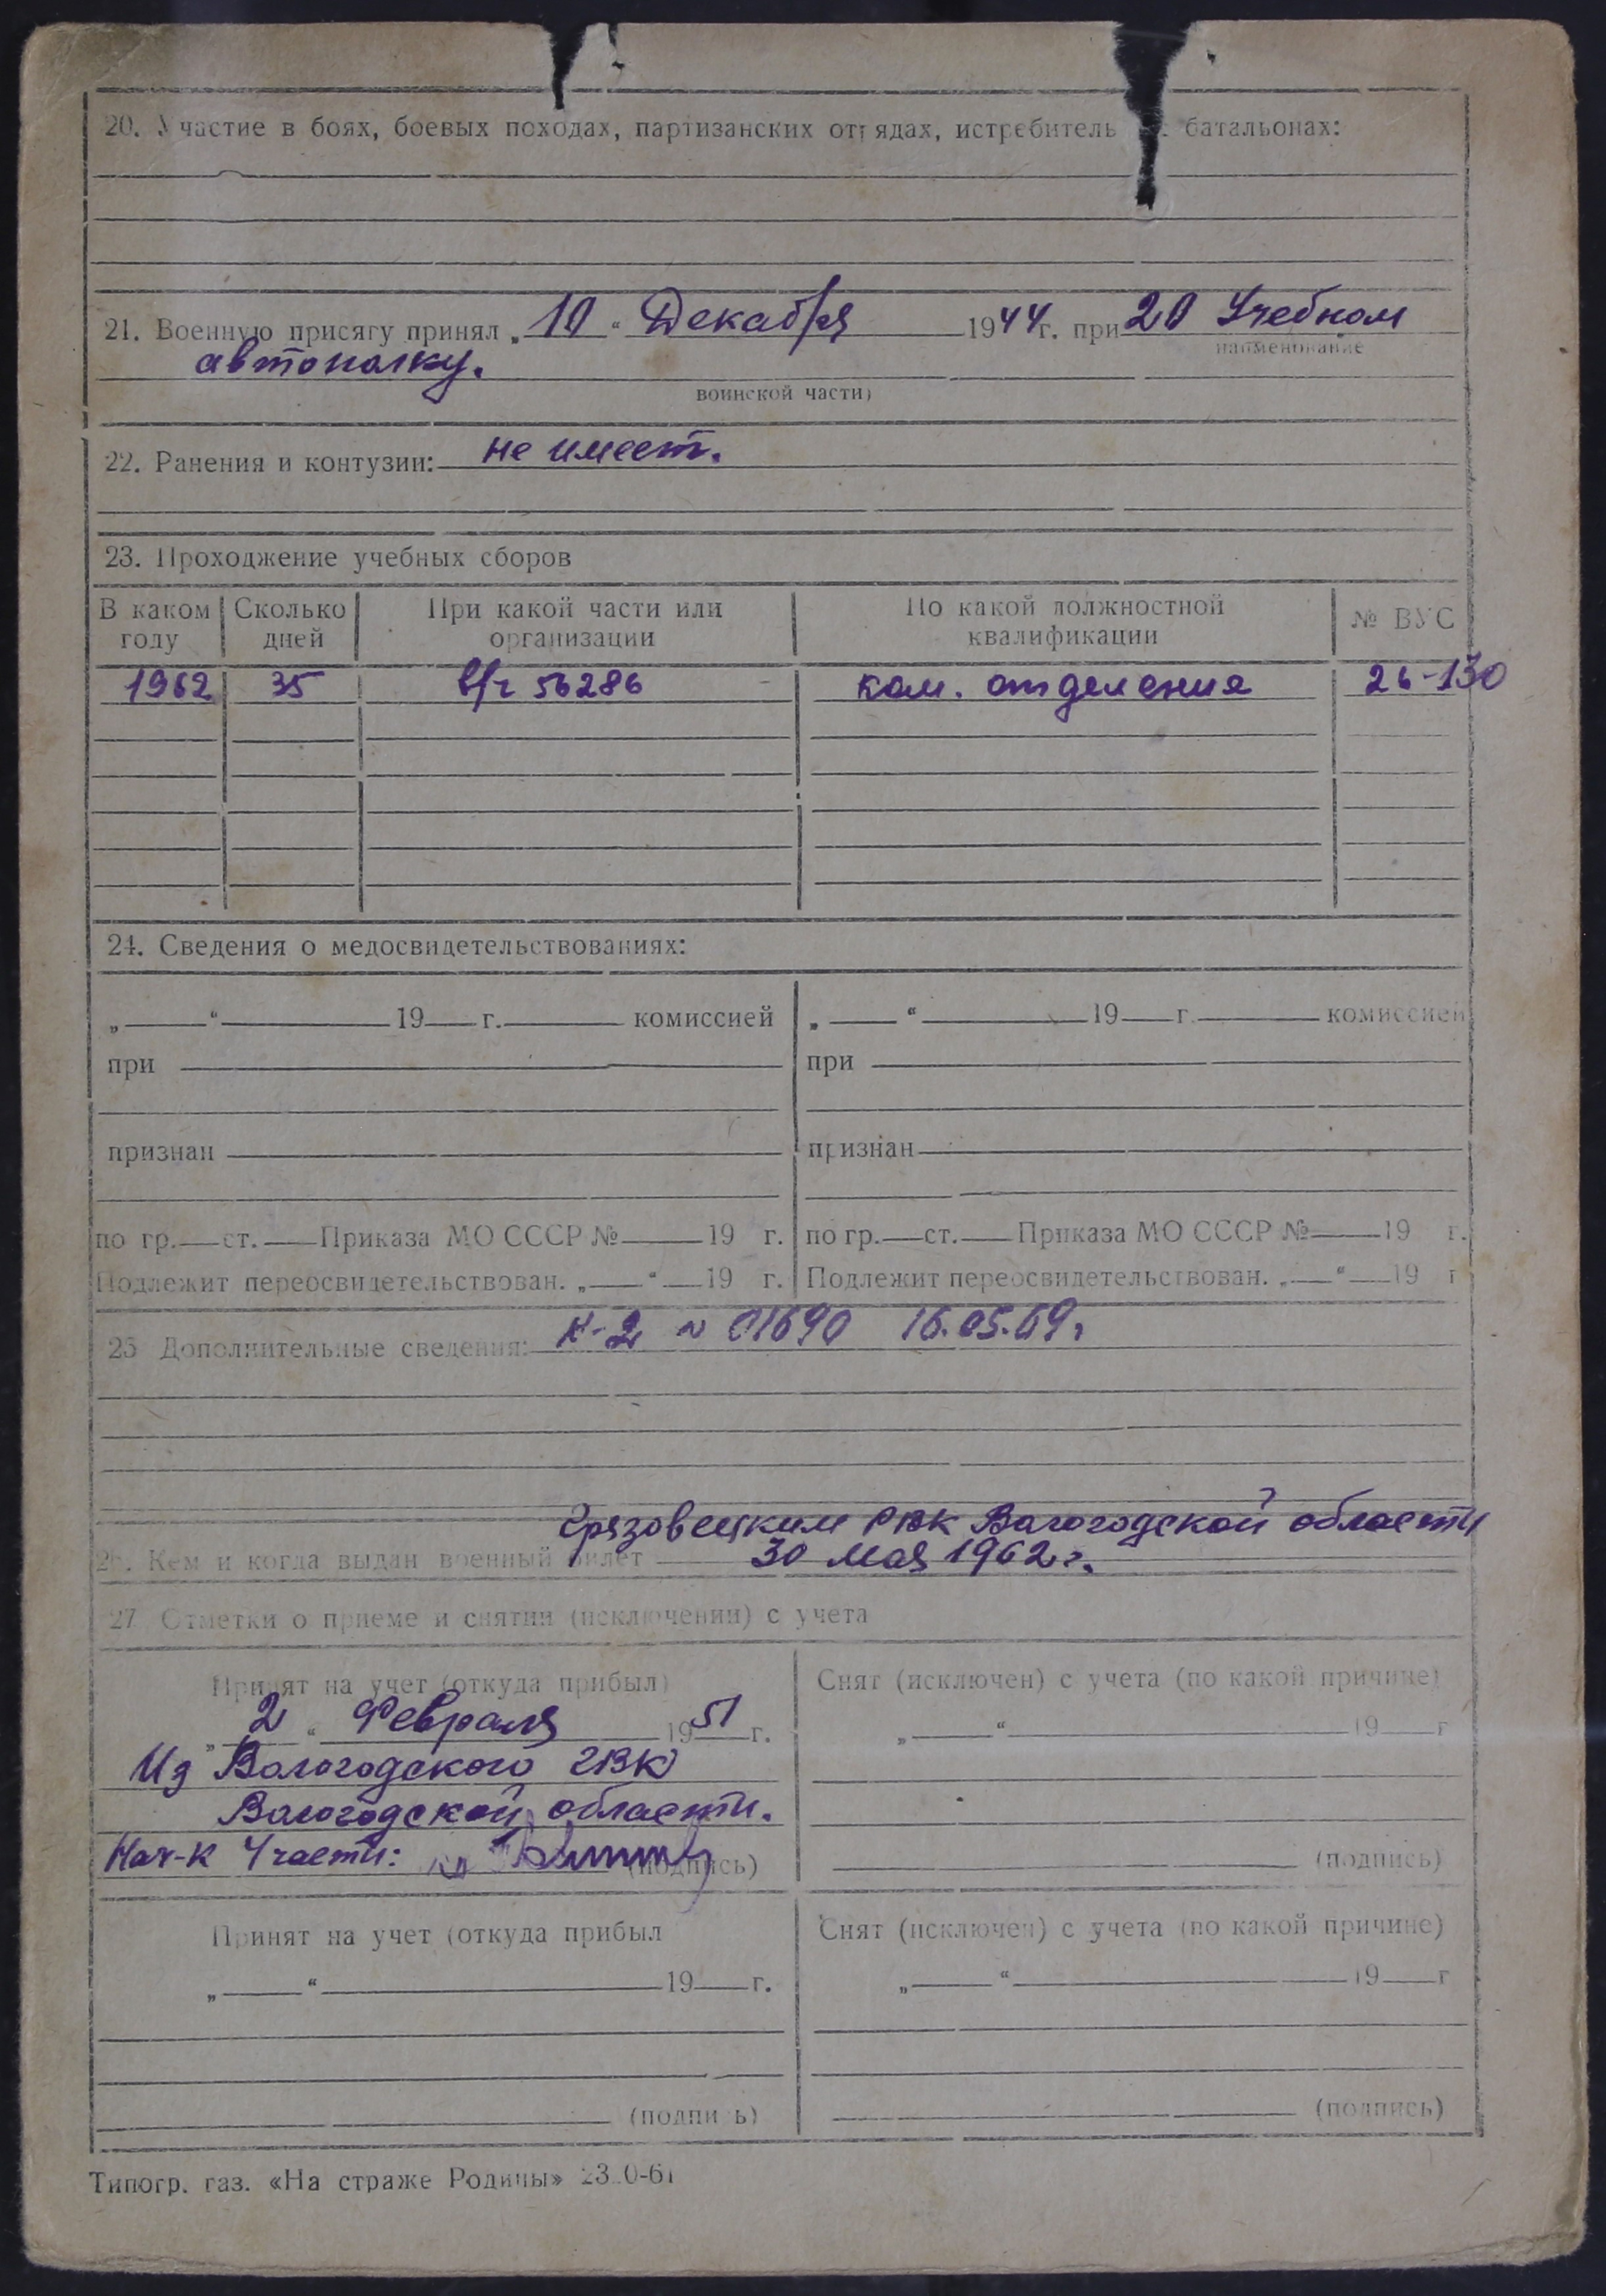 20. Участие в боях, боевых походах, партизанских отрядах, истребитель батальонах:
21. Военную присягу принял „ 10 “ Декабря 1944 г. при 20 Учебном
наименование
автополку.
воинской части)
22. Ранения и контузии: не имеет.
23. Прохоֹджение учебных сборов
В каком году | Сколько дней | При какой части или организации | По какой должностной квалификации | № ВУС
1962 | 35 | в/ч 56286 | ком. отделения | 26-130
24. Сведения о медосвидетельствованиях:
„ “ 19 г. комиссией | „ “ 19 г. комиссией
при | при
признан | признан
по гр. ст. Приказа МО СССР № 19 г. | по гр. ст. Приказа МО СССР № 19 г.
Подлежит переосвидетельствован. „ “ 19 г. | Подлежит переосвидетельствован. „ “ 19 г
25 Дополнительные сведения: К-2 № 01690 16.05.69г
Грязовецким РВК Вологодской области
26. Кем и когда выдан военный билет 30 Мая 1962 г.
27 Отметки о приеме и снятии (исключении) с учета
Принят на учет (откуда прибыл) | Снят (исключен) с учета (по какой причине)
„ 2 “ Февраля 1951 г. | „ “ 19 г
Из Вологодского ГВК
Вологодской области.
Нач-к 4 части: (подпись) | (подпись)
Принят на учет (откуда прибыл | Снят (исключен) с учета (по какой причине)
„ “ 19 г. | „ “ 19 г
(подпись) | (подпись)
Типогр. газ. «На страже Родины»